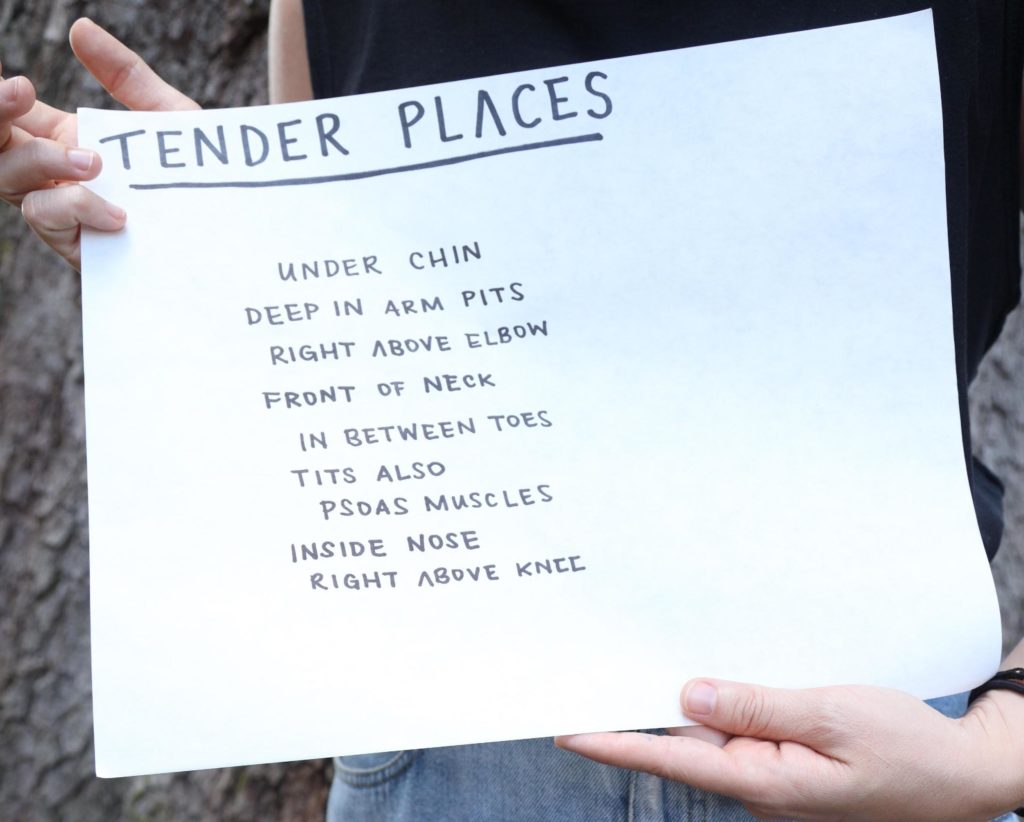 TENDER PLACES
UNDER CHIN
DEEP IN ARM PITS
RIGHT ABOVE ELBOW
FRONT OF NECK
IN BETWEEN TOES
TITS ALSO
PSOAS MUSCLES
INSIDE NOSE
RIGHT ABOVE KNEE